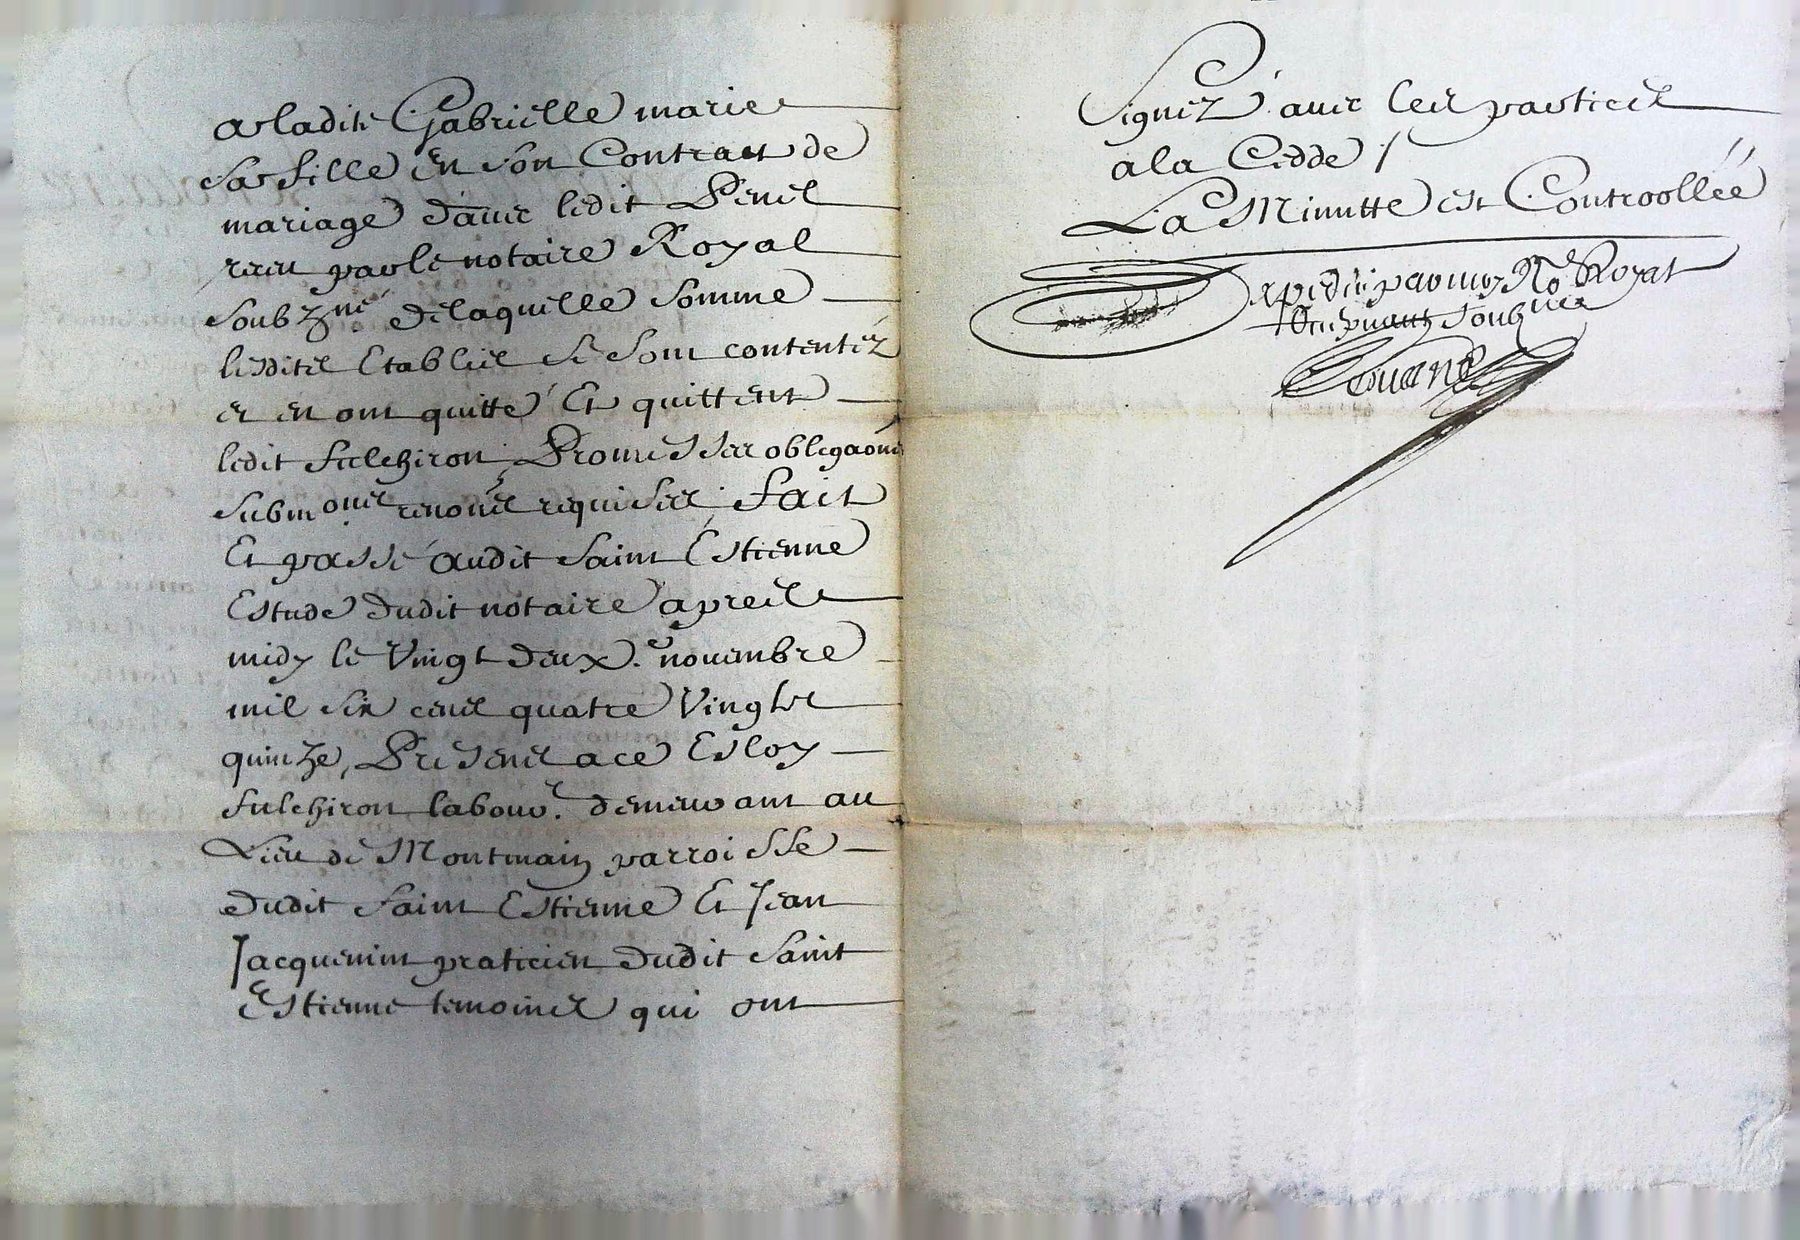 a ladite Gabrielle marie
sa fille en son Contract de
mariage d'avec ledit Penel
receu par le notaire Royal
soubzné de laquelle somme
lesdites Etablies se sont contentéz
et en ont quitté Et quittent
ledit fulchiron Promesses obligaons
submons renons requises fait
Et passé audit saint Estienne
Estude dudit notaire apres
midy le Vingt deux.e novembre
mil six cens quatre Vingts
quinze, Presens a ce Esloy
fulchiron labour. demeurant au
Lieu de Montmain parroisse
dudit saint Estienne Et Jean
Jacquemint praticien dudit saint
Estienne temoines qui ont
Signéz avec les parties
a la Cedde /
La Minutte est Controollée
expedié par moy No.e Royal
soubzné